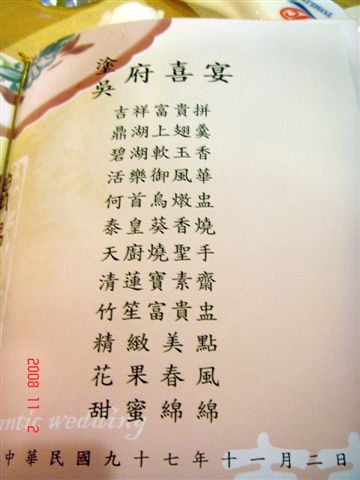 塗吳府喜宴
吉祥富貴拼
鼎湖上翅羹
碧湖軟玉香
活樂御風華
何首烏燉盅
泰皇葵香燒
天廚燒聖手
清蓮寶素齋
竹笙富貴盅
精緻美點
花果春風
甜蜜綿綿
antic wedding
中華民國九十七年十一月二日
2008 11 2